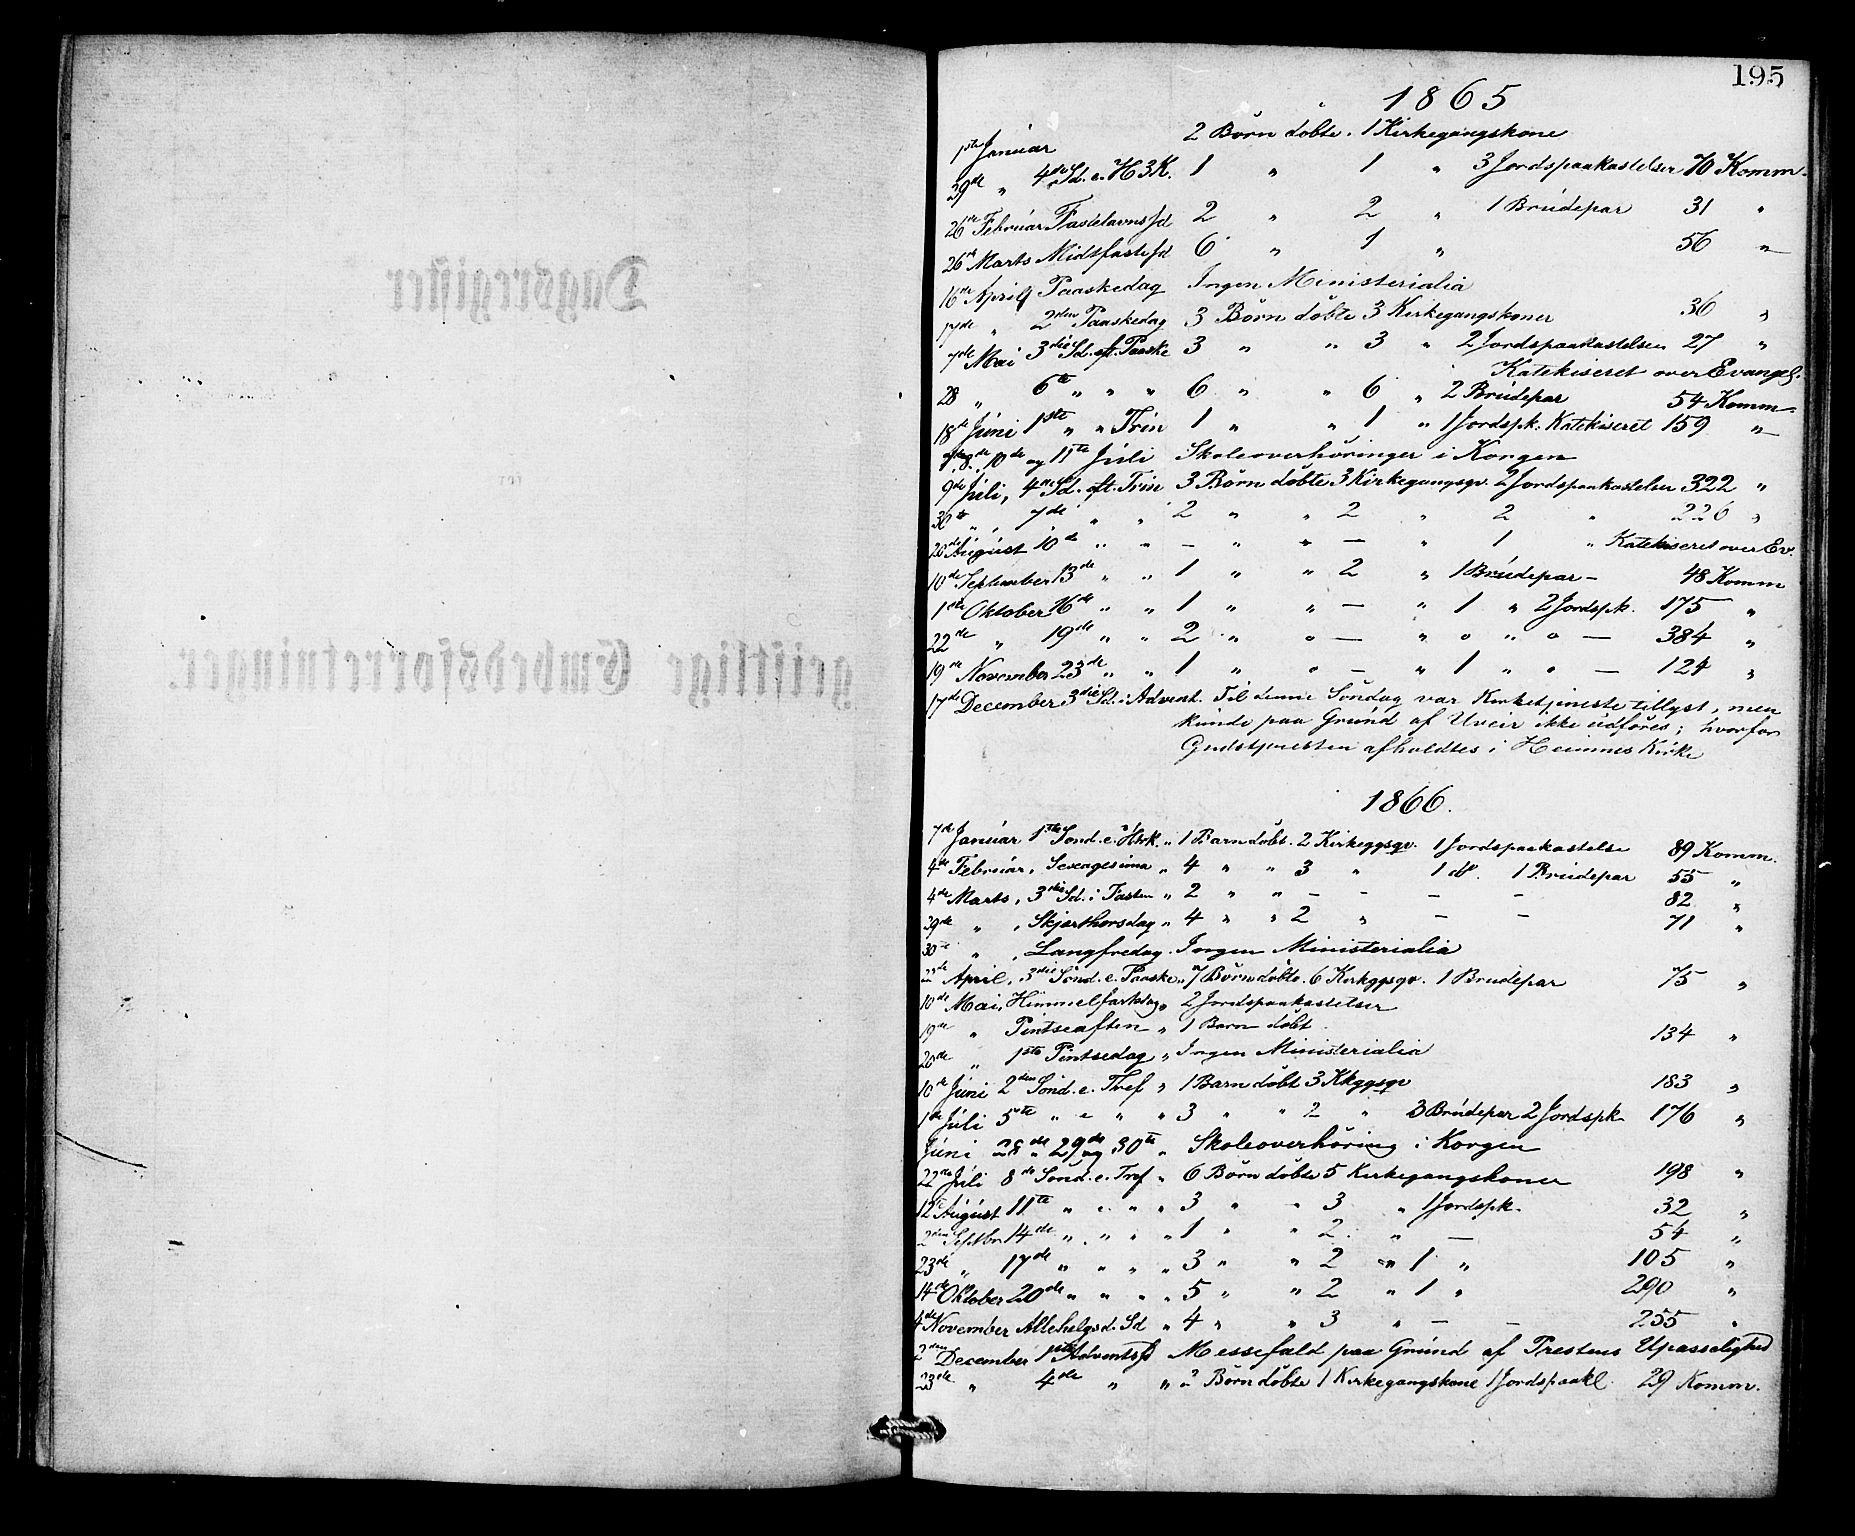 195
1865
1ste Januar 2 Børn døbte. 1 Kirkegangskone
29de " 4de Sd. e. H 3 K. 1 " 1 " 3 Jordspaakastelser 70 Komm.
26de Februar Fastelavns Sd 2 " 2 " 1 Brudepar 31 "
26de Marts Midtfaste Sd 6 " 1 " 56 "
16de April Paaskedag Ingen Ministerialia
17de " 2den Paaskedag 3 Børn døbte 3 Kirkegangskoner 36 "
7de Mai 3die Sd. eft. Paaske 3 " " 3 " 2 Jordspaakastelser 27 "
Katekiseret over Evangel.
28 " 6te " " " 6 " " 6 " 2 Brudepar 54 Komm.
18de Juni 1ste " " Trin 1 " " 1 " 1 Jordspk. Katekiseret 159 "
8de, 10de og 11te Juli Skoleoverhøringer i Korgen
9de Juli, 4de Sd. eft. Trin 3 Børn døbte 3 Kirkegangsqv. 2 Jordspaakastelser 322 "
30te " , 7de " " 2 " " 2 " 2 " 226 "
20de August 10de " " — " " — " 1 " Katekiseret over Ev.
10de September 13de " " 1 " " 2 " 1 Brudepar — 48 Komm
1ste Oktober 16de " " 1 " " — " 1 " 2 Jordspk. 175 "
22de " 19de " " 2 " " — " " " " — 384 "
19de November 23de " " 1 " " — " 1 " " — 124 "
17de December 3die Sd. i Advent. Til denne Søndag var Kirketjeneste tillyst, men
kunde paa Grund af Uveir ikke udføres; hvorfor
Gudstjenesten afholdtes i Hemnes Kirke
1866.
7de Januar 1ste Sønd. e. H3k. " 1 Barn døbt. 2 Kirkeggsqv. 1 Jordspaakastelse 89 Komm.
4de Februar, Sexagesima " 4 " " 3 " 1 do. 1 Brudepar 55 "
4de Marts, 3die Sd. i Fasten " 2 " " — — — — 82 "
29de " , Skjærthorsdag " 4 " " 2 " — — 71 "
30te " , Langfredag. Ingen Ministerialia
22de April, 3die Sønd. e. Paaske " 7 Børn døbte. 6 Kirkggsqv. 1 Brudepar 75 "
10de Mai, Himmelfartsdag " 2 Jordspaakastelser
19de " Pintseaften " 1 Barn døbt. 134 "
20de " 1ste Pintsedag " Ingen Ministerialia
10de Juni 2den Sønd. e. Tref " 1 Barn døbt 3 Kkggsqv 183 "
1ste Juli 5te " e " " 3 " " 2 " 3 Brudepar 2 Jordspk. 176 "
Juni 28de " 29de og 30te " Skoleoverhøring i Korgen
22de Juli 8de Sønd. e. Tref " 6 Børn døbte 5 Kirkegangskoner 198 "
12te August 11te " e. " " 3 " " 3 " 1 Jordspk. 32 "
2den Septbr 14de " " " " 1 " " 2 " — 54 "
23de " 17de " " " " 3 " " 2 " 1 " 105 "
14de Oktober 20de " " " " 5 " " 2 " 1 " 290 "
4de November Allehelgsd. Sd " 4 " " 3 " — — 255 "
2den December 1ste Advents Sd Messefald paa Grund af Prestens Upasselighed
23de " 4de " " 2 Børn døbte 1 Kirkegangskone 1 Jordspaakl. 29 Komm.